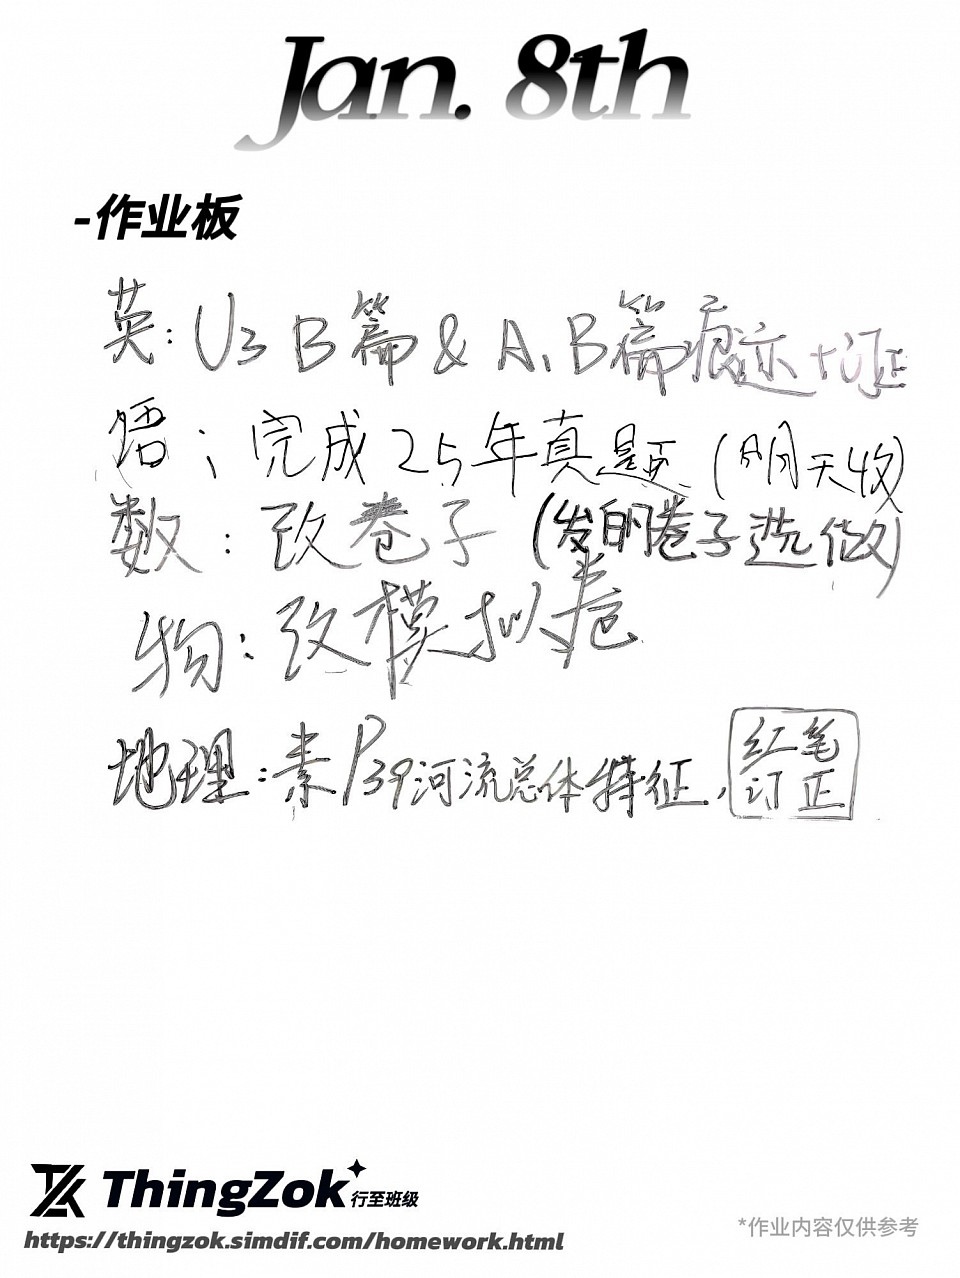 Jan. 8th
-作业板
英: U3 B篇 & A、B篇痕迹+订正
语: 完成25年真题 (明天收)
数: 改卷子 (发的卷子选做)
物: 改模拟卷
地理: 素P39河流总体特征, 红笔订正
ThingZok 行至班级
https://thingzok.simdif.com/homework.html
*作业内容仅供参考